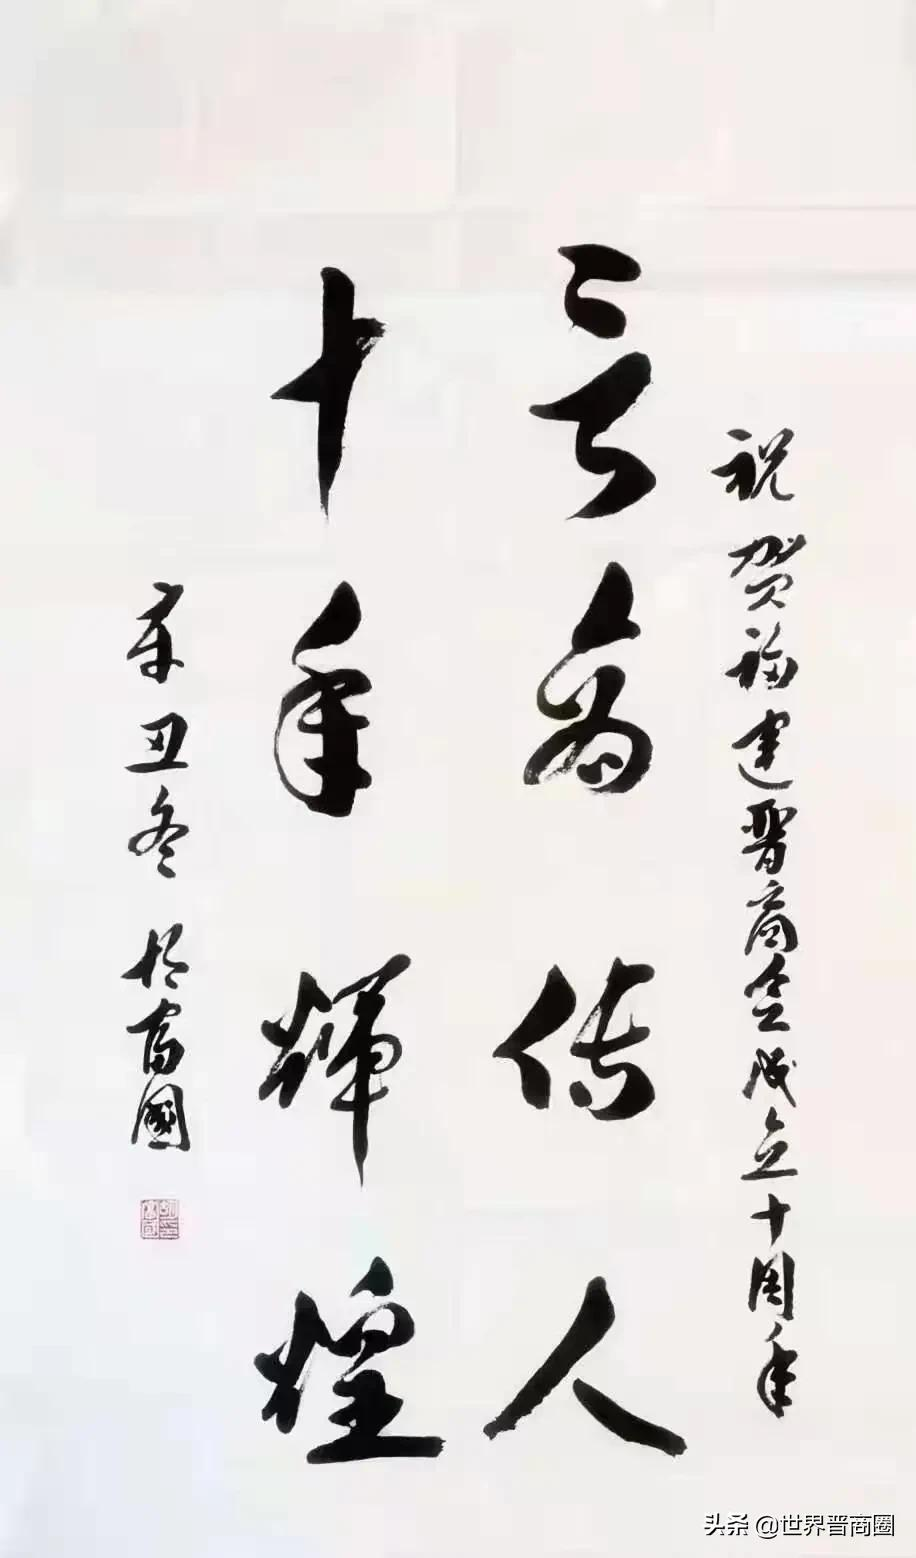 祝贺福建晋商会成立十周年
晋商传人
十年輝煌
辛丑冬 胡富國
头条 @世界晋商圈